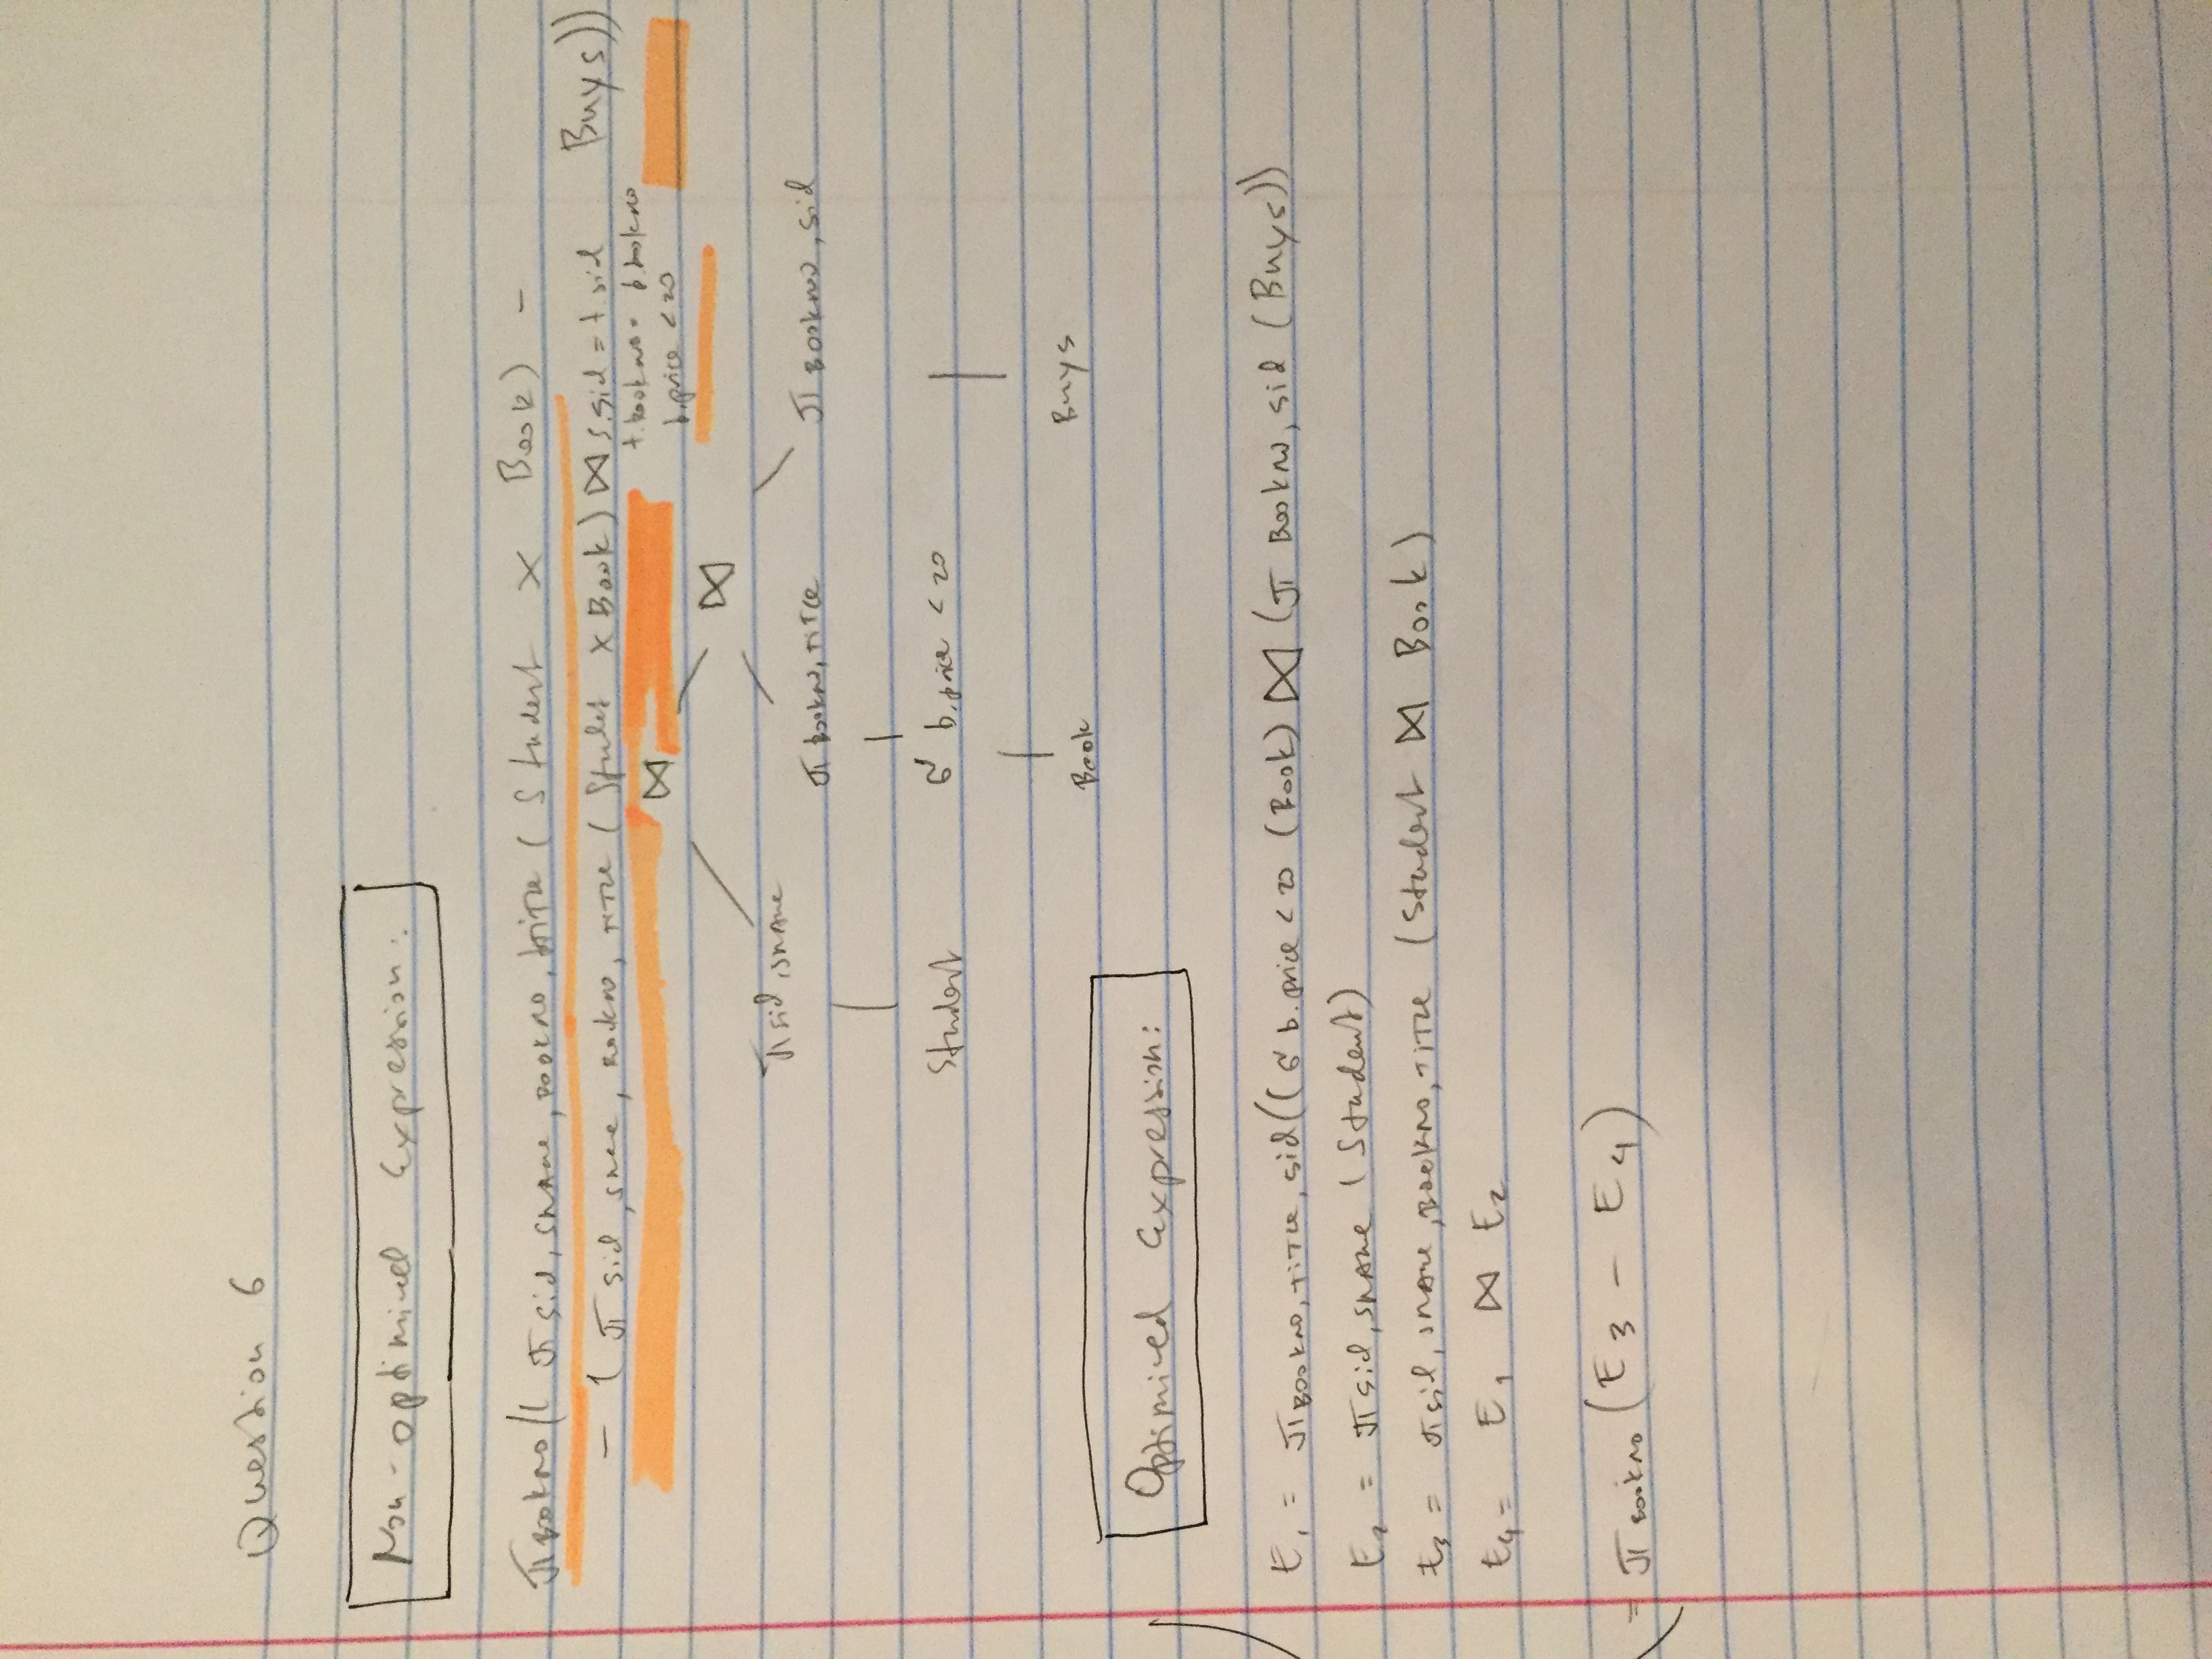 Question 6
Non-optimized Expression:
π Bookno (( π sid, sname, bookno, title ( Student × Book ) —
— ( π sid, sname, bookno, title ( Studet × Book ) ⋈ s.sid = t.sid Buys ))
t.bookno = b.bookno
b.price < 20
⋈
⋈
π sid, sname
π Bookno, title
π Bookno, sid
Student
σ b.price < 20
Book
Buys
Optimized Expression:
E1 = π Bookno, title, sid (( σ b.price < 20 (Book) ⋈ (π Bookno, sid (Buys))
E2 = π sid, sname ( Student)
E3 = π sid, sname, Bookno, title (Student ⋈ Book)
E4 = E1 ⋈ E2
= π Bookno (E3 - E4)